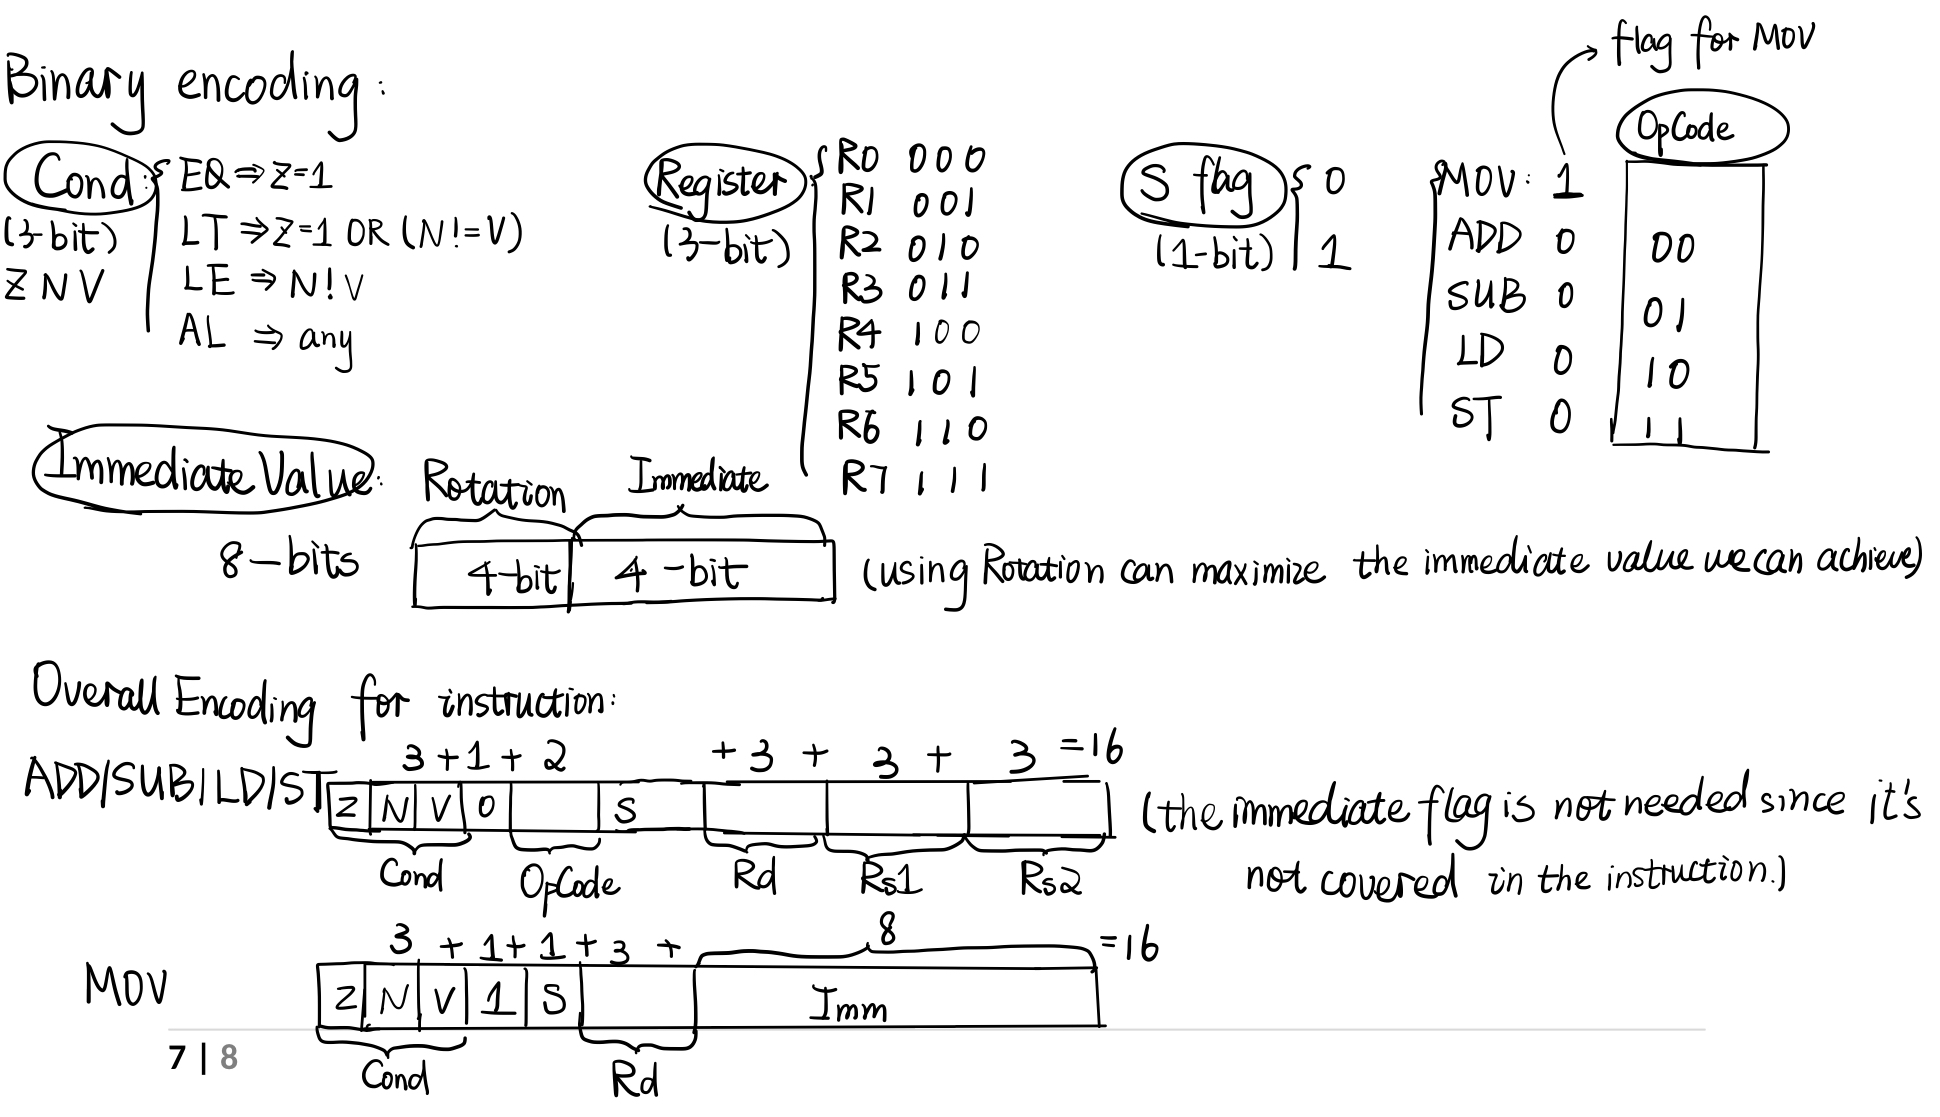 flag for MOV
Binary encoding:
OpCode
Cond:
(3-bit)
Z N V
EQ ⇒ Z=1
LT ⇒ Z=1 OR (N!=V)
LE ⇒ N!V
AL ⇒ any
Register
(3-bit)
R0 000
R1 001
R2 010
R3 011
R4 100
R5 101
R6 110
R7 111
S flag
(1-bit)
0
1
MOV: 1
ADD 0 00
SUB 0 01
LD 0 10
ST 0 11
Immediate Value:
8-bits
Rotation Immediate
4-bit 4-bit
(using Rotation can maximize the immediate value we can achieve)
Overall Encoding for instruction:
3 + 1 + 2 + 3 + 3 + 3 = 16
ADD/SUB/LD/ST Z N V 0 S
Cond OpCode Rd Rs1 Rs2
(the immediate flag is not needed since it's
not covered in the instruction.)
3 + 1 + 1 + 3 + 8 = 16
MOV Z N V 1 S Imm
Cond Rd
7 | 8